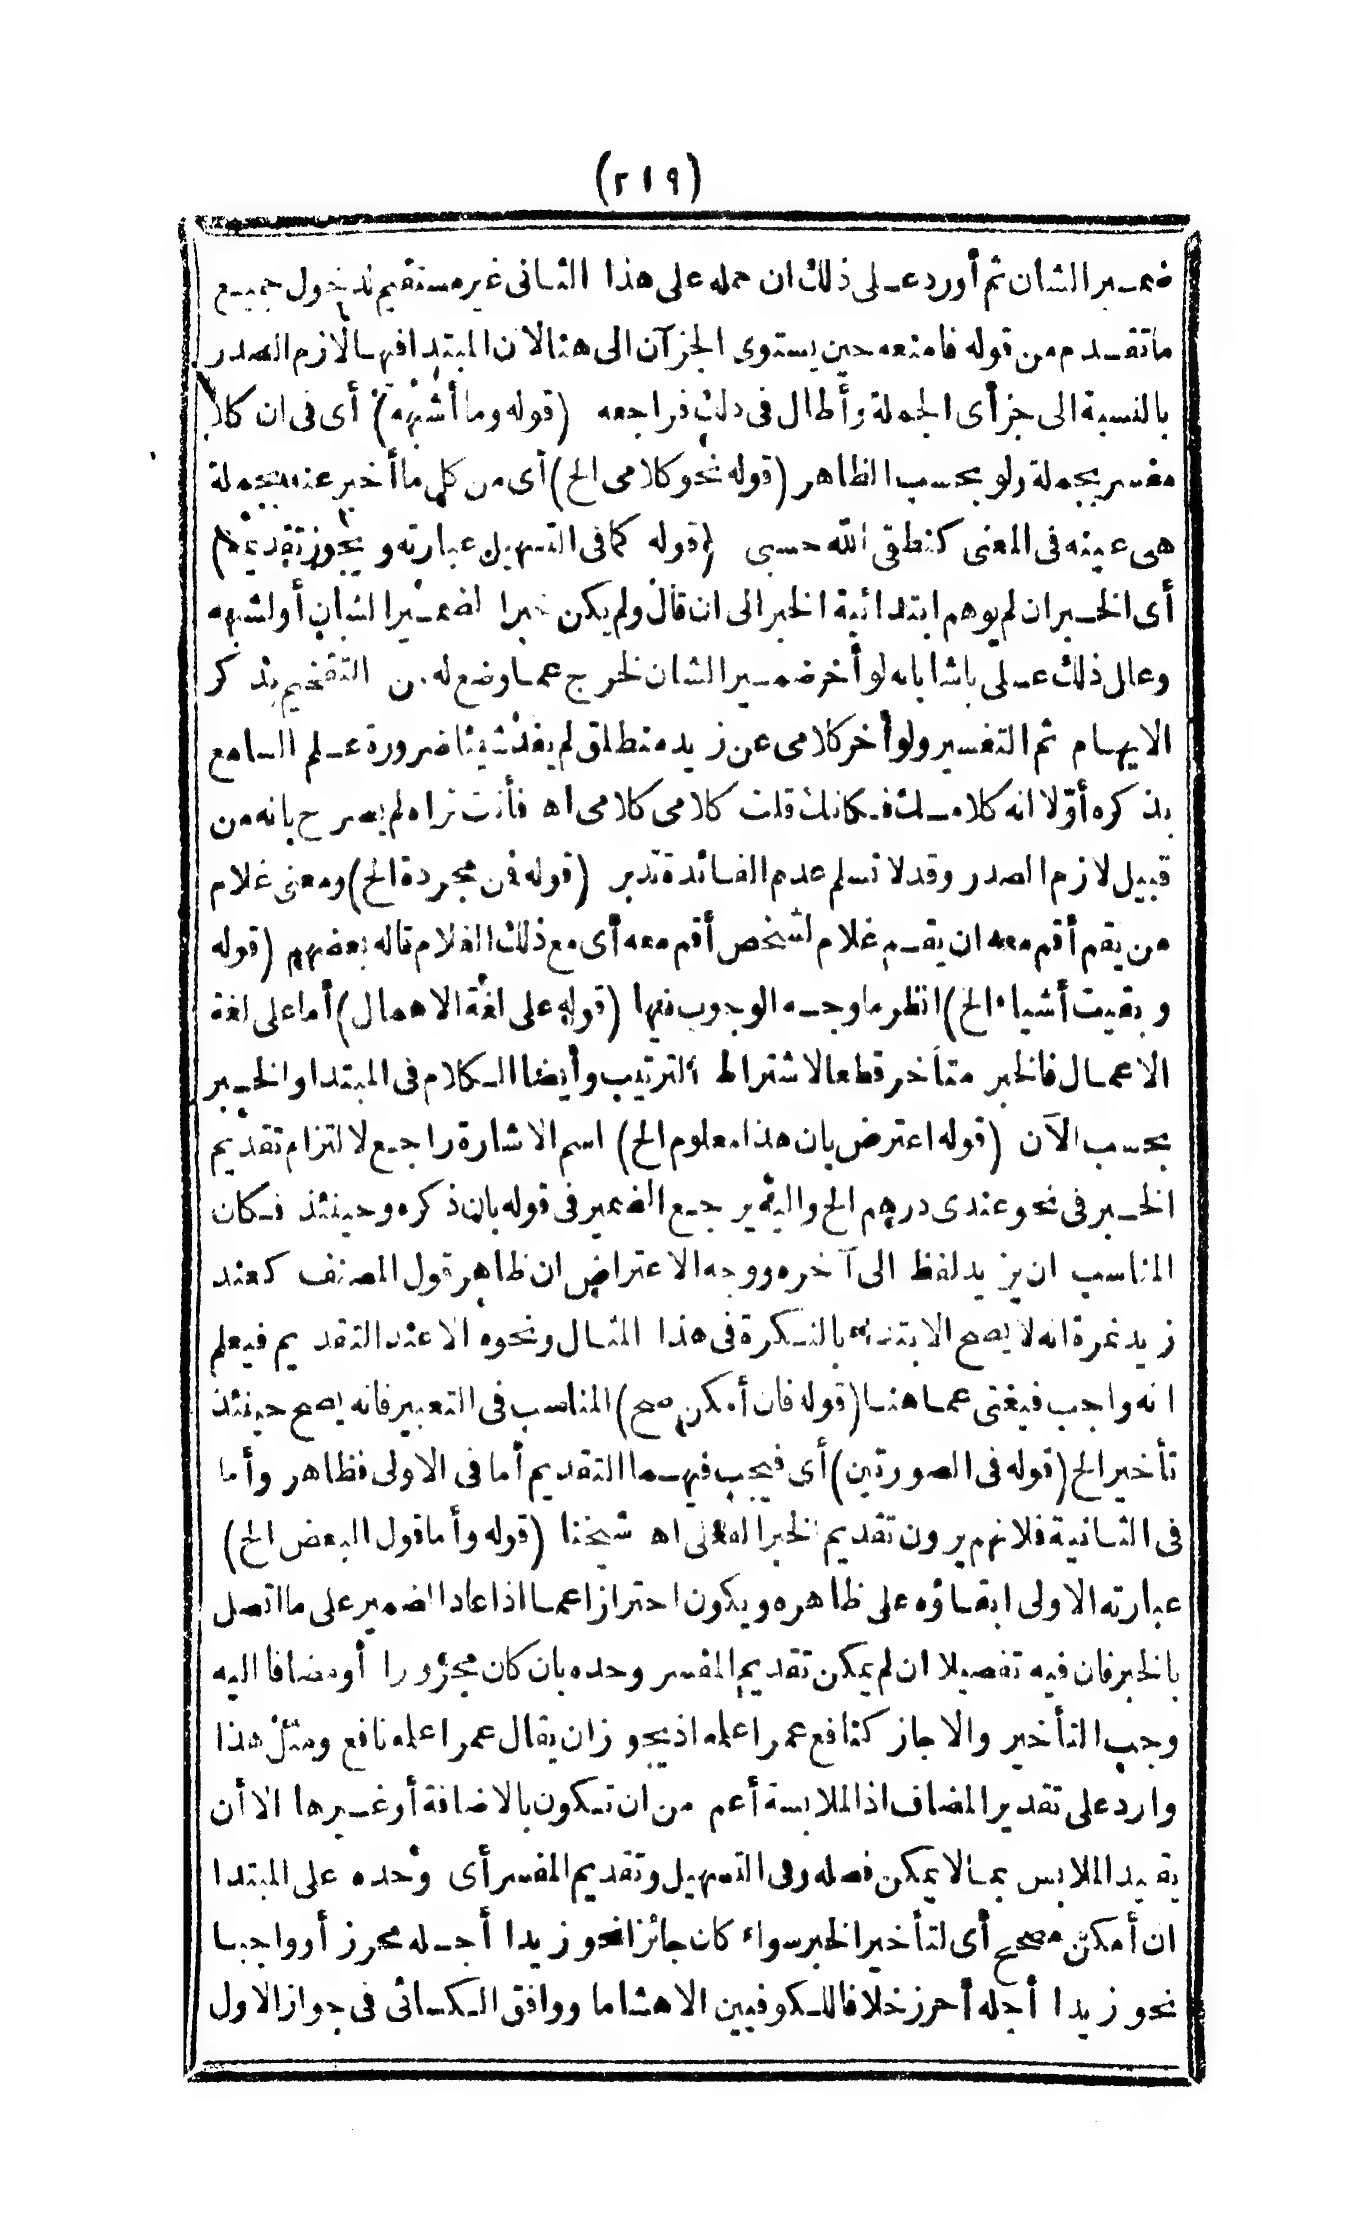 (٢١٩)
ضمير الشان ثم أورد على ذلك ان حمله على هذا الثانى غير مستقيم لدخول جميع
ما تقدم من قوله فامنعه حين يستوى الجزآن الى هنا لان المبتدا فيها لازم الصدر
بالنسبة الى جزأى الجملة وأطال فى ذلك فراجعه (قوله وما أشبهه) أى فى ان كلا
مفسر بجملة ولو بحسب الظاهر (قوله نحو كلامى الخ) أى من كل ما أخبر عنه بجملة
هى عينه فى المعنى كنطقى الله حسبى (قوله كما فى التسهيل عبارته ويجوز تقديمه)
أى الخبر ان لم يوهم ابتدائية الخبر الى ان قال ولم يكن خبرا لضمير الشان أو لشبهه
وعال ذلك على باشا بانه لو أخر ضمير الشان لخرج عما وضع له من التفخيم بذكر
الايهام ثم التفسير ولو أخر كلامى عن زيد منطلق لم يفد شيئا ضرورة علم السامع
بذكره أوّلا انه كلامك فكانك قلت كلامى كلامى اه فأنت تراه لم يصرح بانه من
قبيل لازم الصدر وقد لا تسلم عدم الفائدة تدبر (قوله فن مجردة الخ) ومعنى غلام
من يقم أقم معه ان يقم غلام لشخص أقم معه أى مع ذلك الغلام قاله بعضهم (قوله
وبقيت أشياء الخ) انظر ما وجه الوجوب فيها (قوله على لغة الاهمال) أما على لغة
الاعمال فالخبر متأخر قطعا لاشتراط الترتيب وأيضا الكلام فى المبتدا والخبر
بحسب الآن (قوله اعترض بان هذا معلوم الخ) اسم الاشارة راجع لالتزام تقديم
الخبر فى نحو عندى درهم الخ واليه يرجع الضمير فى قوله بان ذكره وحينئذ فكان
المناسب ان يزيد لفظ الى آخره ووجه الاعتراض ان ظاهر قول المصنف كعند
زيد نمرة انه لا يصح الابتداء بالنكرة فى هذا المثال ونحوه الا عند التقديم فيعلم
انه واجب فيغنى عما هنا (قوله فان أمكن صح) المناسب فى التعبير فانه يصح حينئذ
تأخير الخ (قوله فى الصورتين) أى فيجب فيهما التقديم أما فى الاولى فظاهر وأما
فى الثانية فلانهم يرون تقديم الخبر الفعلى اه شيخنا (قوله وأما قول البعض الخ)
عبارته الاولى ابقاؤه على ظاهره ويكون احترازا عما اذا عاد الضمير على ما اتصل
بالخبر فان فيه تفصيلا ان لم يمكن تقديم المفسر وحده بان كان مجرورا أو مضافا اليه
وجب التأخير والا جاز كنافع عمرا علمه اذ يجوز ان يقال عمرا علمه نافع ومثل هذا
وارد على تقدير المضاف اذ الملابسة أعم من ان تكون بالاضافة أو غيرها الا أن
يقيد الملابس بما لا يمكن فصله وفى التسهيل وتقديم المفسر أى وحده على المبتدا
ان أمكن مصحح أى لتأخير الخبر سواء كان جائزا نحو زيدا أجله محرز أو واجبا
نحو زيدا أجله أحرز خلافا للكوفيين الا هشاما ووافق الكسائى فى جواز الاول